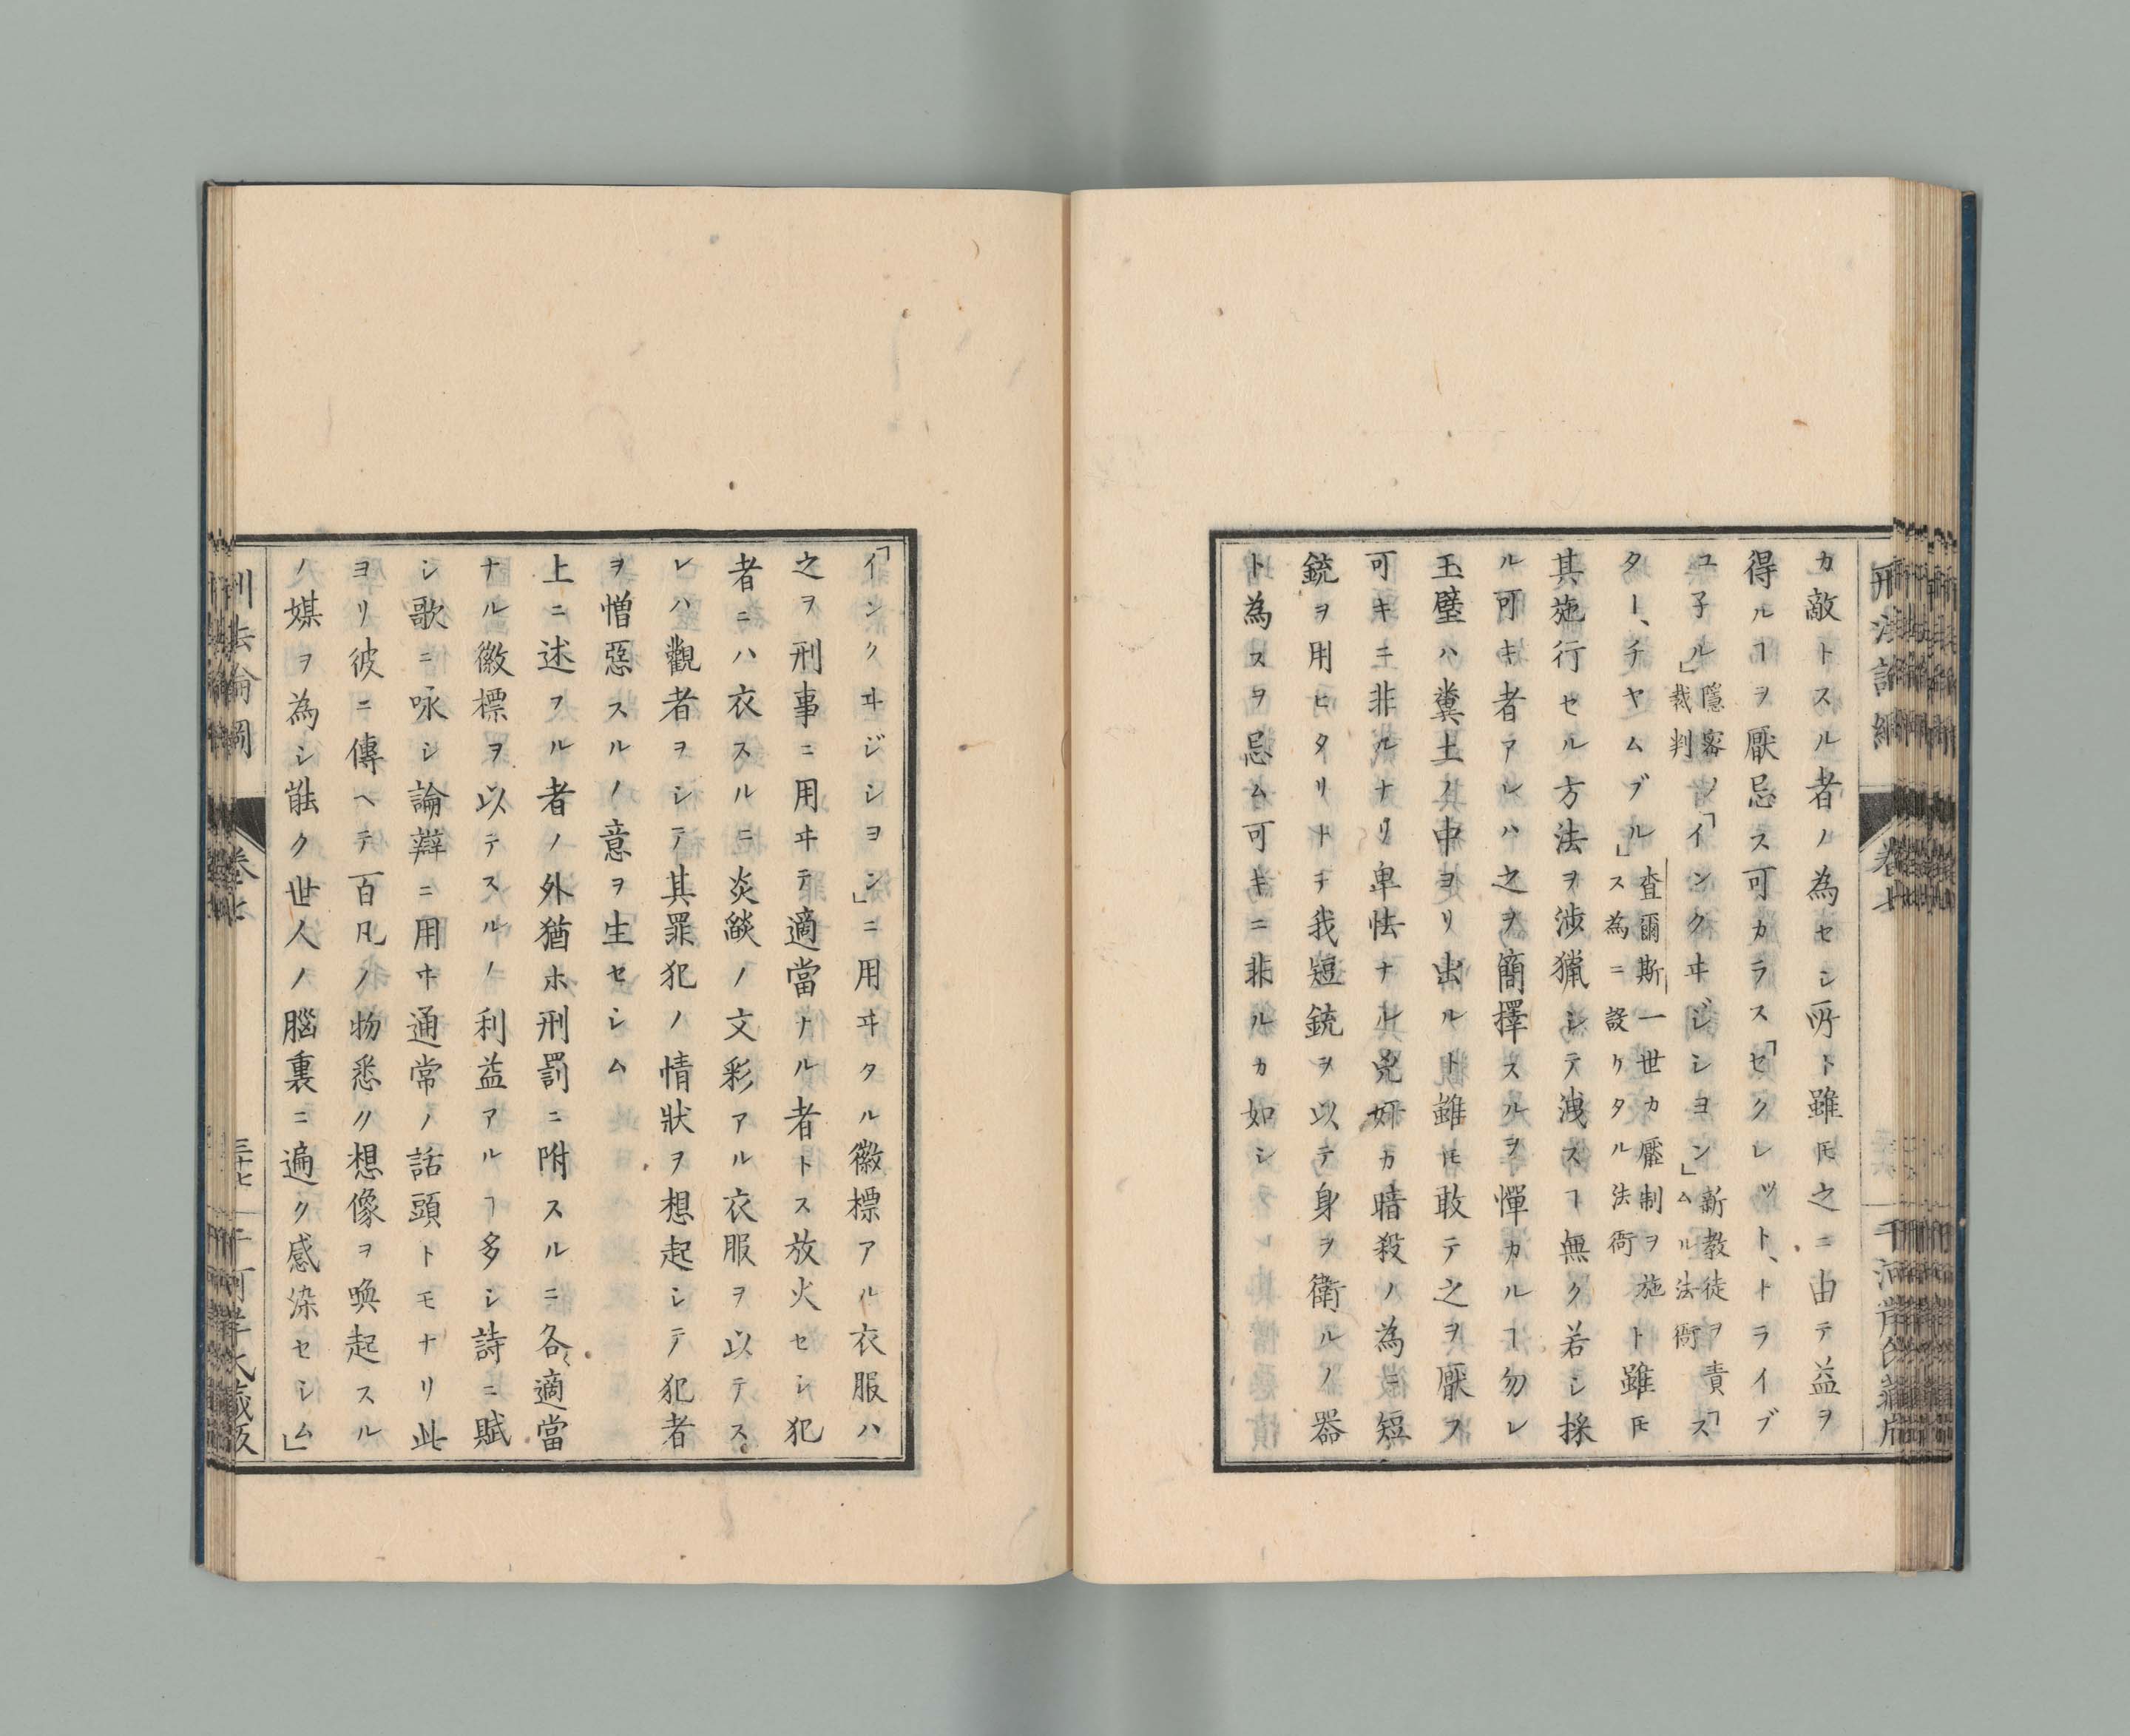 カ敵トスル者ノ為セシ所ト雖𪜈之ニ由テ益ヲ
得ルヿヲ厭忌ス可カラス「セクレット、トライブ
ユ子ル」隱密ノ裁判「インクヰジシヨン」新教徒ヲ責ムル法衙「ス
ター、チヤムブル」査爾斯一世カ壓制ヲ施ス為ニ設ケタル法衙ト雖𪜈
其施行セル方法ヲ渉獵シテ洩スヿ無ク若シ採
ル可キ者アレハ之ヲ簡擇スルヲ憚カルヿ勿レ
玉璧ハ糞土ノ中ヨリ出ルト雖𪜈敢テ之ヲ厭フ
可キニ非ルナリ卑怯ナル兇奸カ暗殺ノ為ニ短
銃ヲ用ヒタリトテ我短銃ヲ以テ身ヲ衛ルノ器
ト為スヲ忌ム可キニ非ルカ如シ
「インクヰジシヨン」ニ用ヰタル徽標アル衣服ハ
之ヲ刑事ニ用ヰテ適當ナル者トス放火セシ犯
者ニハ衣スルニ炎燄ノ文彩アル衣服ヲ以テス
レハ觀者ヲシテ其罪犯ノ情狀ヲ想起シテ犯者
ヲ憎惡スルノ意ヲ生セシム
上ニ述フル者ノ外猶ホ刑罰ニ附スルニ各〻適當
ナル徽標ヲ以テスルノ利益アルヿ多シ詩ニ賦
シ歌ニ咏シ論辯ニ用ヰ通常ノ話頭トモナリ此
ヨリ彼ニ傳ヘテ百凡ノ物悉ク想像ヲ喚起スル
ノ媒ヲ為シ能ク世人ノ腦裏ニ遍ク感染セシム」
刑法論綱 卷七 三十七